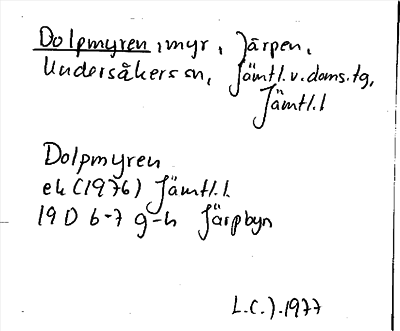 Dolpmyren, myr, Järpen,
Undersåkers sn, Jämtl.v.doms.tg,
Jämtl.l
Dolpmyren
ek (1976) Jämtl.l.
19 D 6-7 g-h Järpbyn
L.C.J.1977